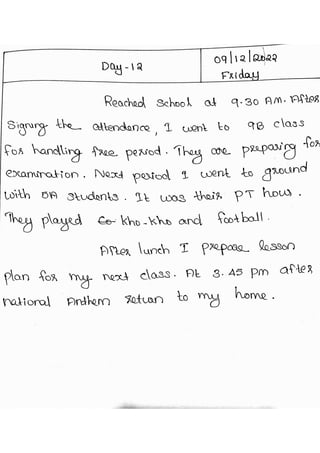 Day-12
09/12/2022
Friday
Reached School at 9.30 AM. After
Signing the attendence, I went to 9B class
for handling free period. They are preparing for
examination. Next period I went to ground
with 8A students. It was their PT hour.
They played kho-kho and football.
After lunch I prepare lesson
plan for my next class. At 3.45 pm after
national Anthem return to my home.